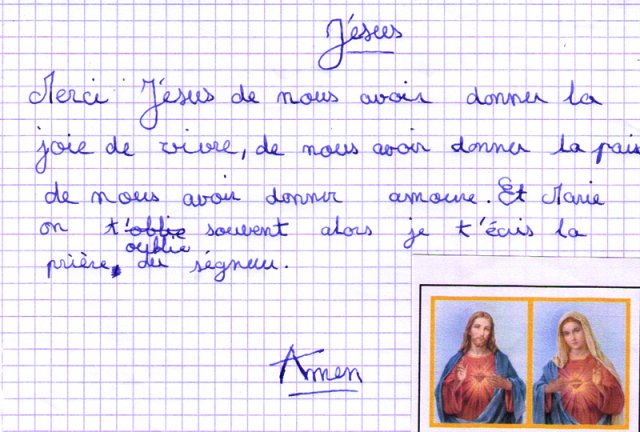 Jésus
Merci Jésus de nous avoir donner la
joie de vivre, de nous avoir donner la paix
de nous avoir donner amoure. Et Marie
on t'oblie souvent alors je t'écris la
oublie
prière, du ségneur.
Amen